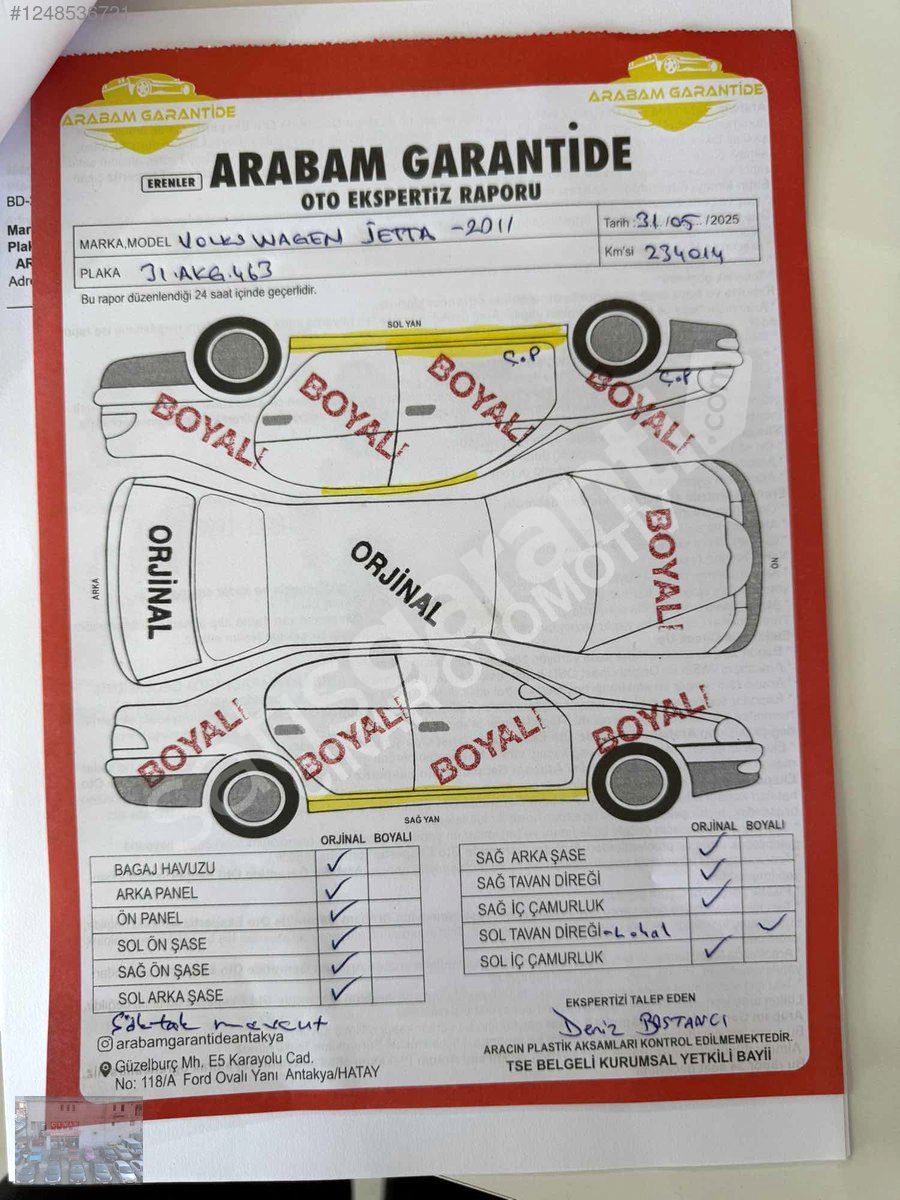 #1248536721
ARABAM GARANTİDE
ARABAM GARANTİDE
ERENLER ARABAM GARANTİDE
OTO EKSPERTİZ RAPORU
MARKA,MODEL VOLKSWAGEN JETTA -2011
Tarih : 31 /05 /2025
PLAKA 31.AKG.463
Km'si 234014
Bu rapor düzenlendiği 24 saat içinde geçerlidir.
SOL YAN
Ç.P
Ç.P
BOYALI
BOYALI
BOYALI
BOYALI
ARKA
ORJİNAL
ORJİNAL
BOYALI
ÖN
BOYALI
BOYALI
BOYALI
BOYALI
SAĞ YAN
ORJİNAL BOYALI
BAGAJ HAVUZU ✓
ARKA PANEL ✓
ÖN PANEL ✓
SOL ÖN ŞASE ✓
SAĞ ÖN ŞASE ✓
SOL ARKA ŞASE ✓
ORJİNAL BOYALI
SAĞ ARKA ŞASE ✓
SAĞ TAVAN DİREĞİ ✓
SAĞ İÇ ÇAMURLUK ✓
SOL TAVAN DİREĞİ -Lokal ✓
SOL İÇ ÇAMURLUK ✓
Sök tak mevcut
abamgarantideantakya
Güzelburç Mh. E5 Karayolu Cad.
No: 118/A Ford Ovalı Yanı Antakya/HATAY
EKSPERTİZİ TALEP EDEN
Deniz BOSTANCI
ARACIN PLASTİK AKSAMLARI KONTROL EDİLMEMEKTEDİR.
TSE BELGELİ KURUMSAL YETKİLİ BAYİİ